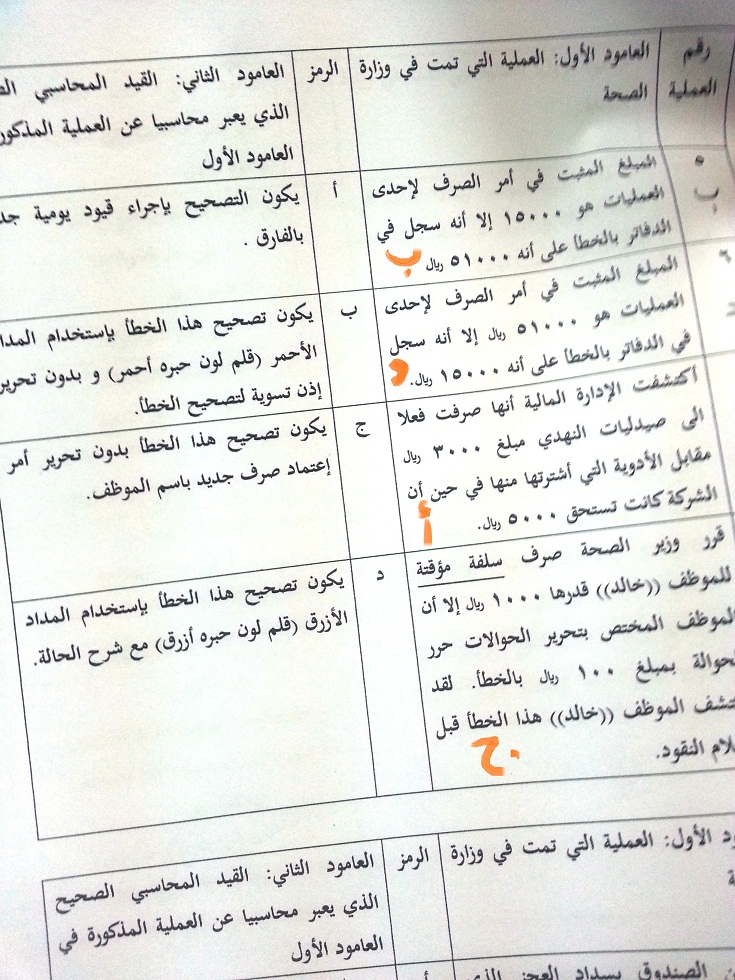 رقم العملية
العامود الأول: العملية التي تمت في وزارة
الصحة
الرمز
العامود الثاني: القيد المحاسبي
الذي يعبر محاسبيا عن العملية المذكورة
العامود الأول
٥
ب
المبلغ المثبت في أمر الصرف لإحدى
العمليات هو ١٥٠٠٠ إلا أنه سجل في
الدفاتر بالخطأ على أنه ٥١٠٠٠ ريال
ب
أ
يكون التصحيح بإجراء قيود يومية
بالفارق .
٦
المبلغ المثبت في أمر الصرف لإحدى
العمليات هو ٥١٠٠٠ ريال إلا أنه سجل
في الدفاتر بالخطأ على أنه ١٥٠٠٠ ريال.
د
ب
يكون تصحيح هذا الخطأ بإستخدام
الأحمر (قلم لون حبره أحمر) و بدون تحرير
إذن تسوية لتصحيح الخطأ.
أكتشفت الإدارة المالية أنها صرفت فعلا
الى صيدليات النهدي مبلغ ٣٠٠٠ ريال
مقابل الأدوية التي أشترتها منها في حين أن
الشركة كانت تستحق ٥٠٠٠ ريال.
أ
ج
يكون تصحيح هذا الخطأ بدون تحرير أمر
إعتماد صرف جديد باسم الموظف.
قرر وزير الصحة صرف سلفة مؤقتة
للموظف ((خالد)) قدرها ١٠٠٠ ريال إلا أن
الموظف المختص بتحرير الحوالات حرر
الحوالة بمبلغ ١٠٠ ريال بالخطأ. لقد
الموظف ((خالد)) هذا الخطأ قبل
النقود.
ج
د
يكون تصحيح هذا الخطأ بإستخدام المداد
الأزرق (قلم لون حبره أزرق) مع شرح الحالة.
الأول: العملية التي تمت في وزارة
الرمز
العامود الثاني: القيد المحاسبي الصحيح
الذي يعبر محاسبيا عن العملية المذكورة في
العامود الأول
الصندوق بسداد العجز الذي